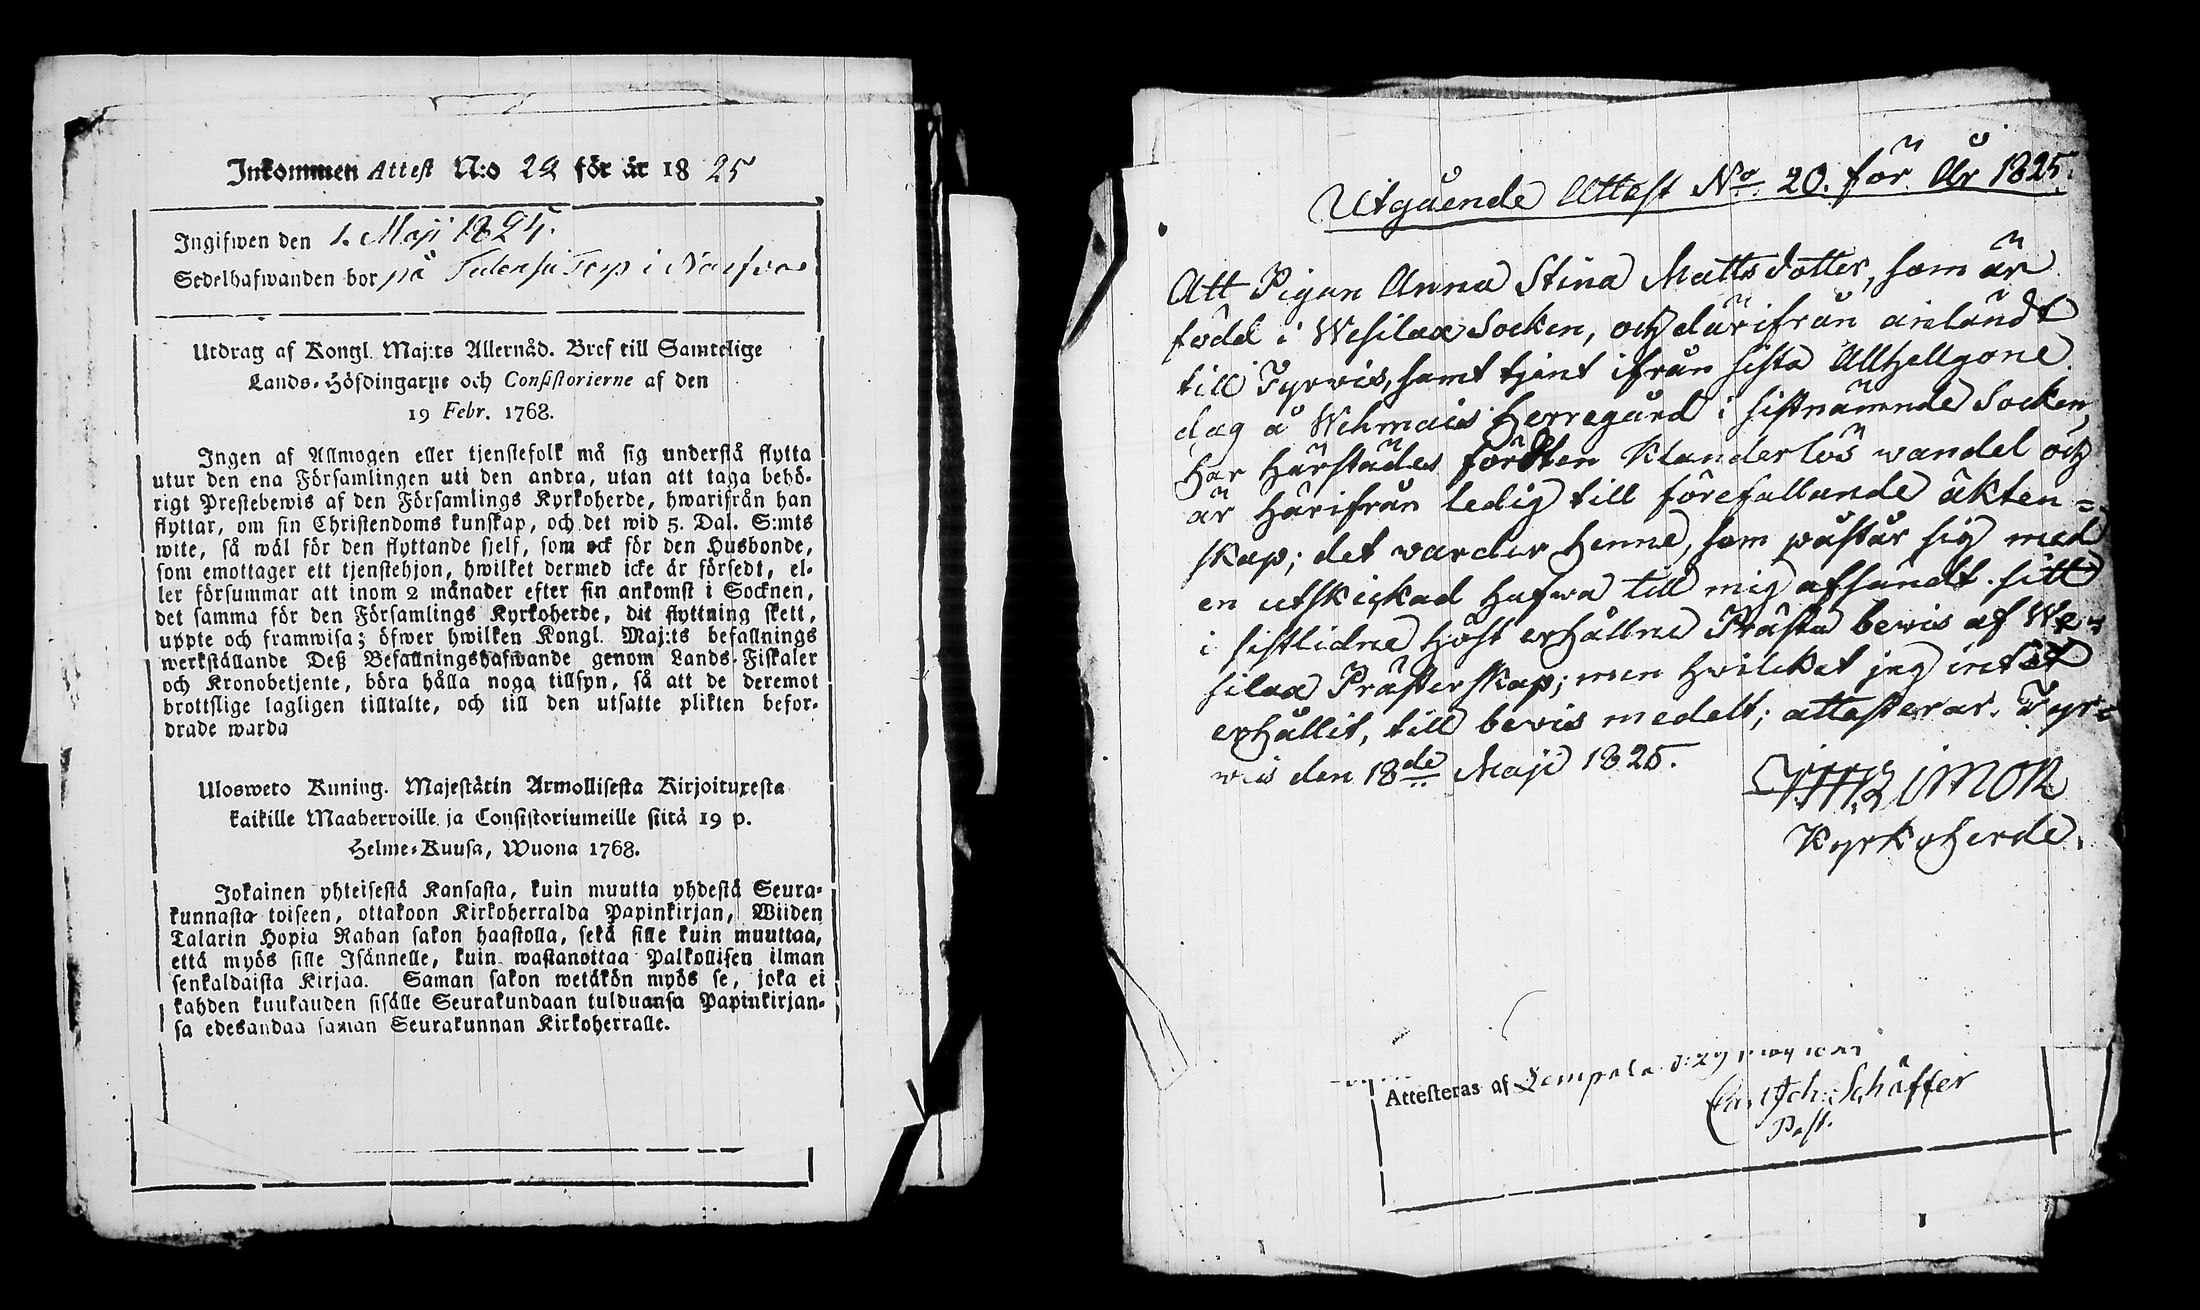 Inkommen Attest N:o 29 för år 1825
Ingifwen den 1. Maji 1825.
Sedelhafwanden bor på Torp i
Utdrag af Kongl. Maj:ts Allernåd. Bref till Samtelige
Lands-Höfdingarne och Consistorierne af den
19 Febr. 1768.
Ingen af Allmogen eller tjenstefolk må sig understå flytta
utur den ena Församlingen uti den andra, utan att taga behö-
rigt Prestebewis af den Församlings Kyrkoherde, hwarifrån han
flyttar, om sin Christendoms kunskap, och det wid 5. Dal. S:mts
wite, så wäl för den flyttande sjelf, som ock för den Husbonde,
som emottager ett tjenstehjon, hwilket dermed icke är försedt, el-
ler försummar att inom 2 månader efter sin ankomst i Socknen,
det samma för den Församlings Kyrkoherde, dit flyttning skett,
uppte och framwisa; öfwer hwilken Kongl. Maj:ts befallnings
werkställande Deß Befallningshafwande genom Lands-Fiskaler
och Kronobetjente, böra hålla noga tillsyn, så att de deremot
brottslige lagligen tilltalte, och till den utsatte plikten befor-
drade warda
Ulosweto Kuning. Majestätin Armollisesta Kirjoituxesta
kaikille Maaherroille ja Consistoriumeille siitä 19 p.
Helme-Kuusa, Wuona 1768.
Jokainen yhteisestä Kansasta, kuin muutta yhdestä Seura-
kunnasta toiseen, ottakoon Kirkoherralda Papinkirjan, Wiiden
Talarin Hopia Rahan sakon haastolla, sekä sille kuin muuttaa,
että myös sille Isännelle, kuin wastanottaa Palkollisen ilman
senkaldaista Kirjaa. Saman sakon wetäkön myös se, joka ei
kahden kuukauden sisälle Seurakundaan tulduansa Papinkirjan-
sa edesandaa saman Seurakunnan Kirkoherralle.
Utgående Attest No. 20. för År 1825.
Att Pigan Anna Stina Matts dotter, som är
född i Wesilax Socken, och därifrån anländt
till Tyrwis, samt tjent ifrån sista Allhellgone
dag å Wehmais Herregård i sistnämnde Socken,
har härstädes fördten klanderlös wandel och
är härifrån ledig till förefallande äkten=
skap; det varder henne, som påstår sig med
en utskickad hafwa till mig afsändt sitt
i sistlidne höst erhållne Prästa bewis af We=
silax Prästerskap; men hvilcket jag intet
erhållit, till bewis medelt; attesterar. Tyr=
wis den 18de Maji 1825.
Kyrkoherde.
Attesteras af Lempala d: 29
Joh: Schäffer
Past.